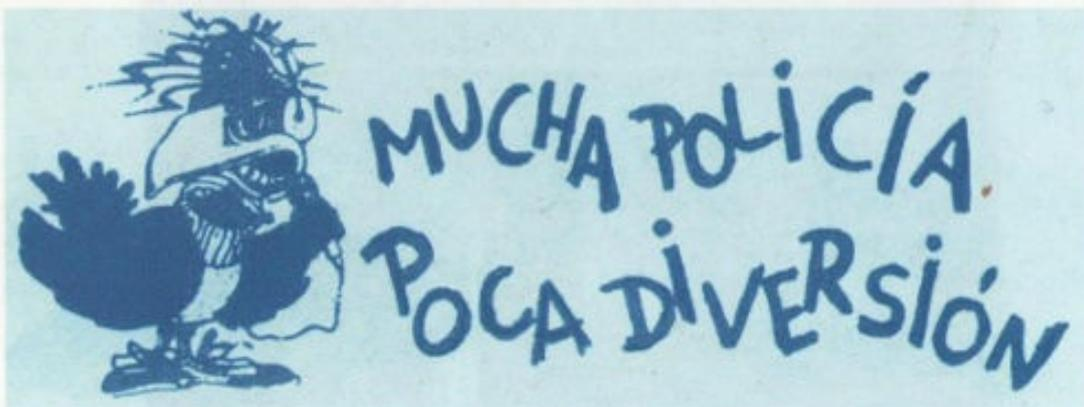 MUCHA POLICÍA.
POCA DIVERSIÓN